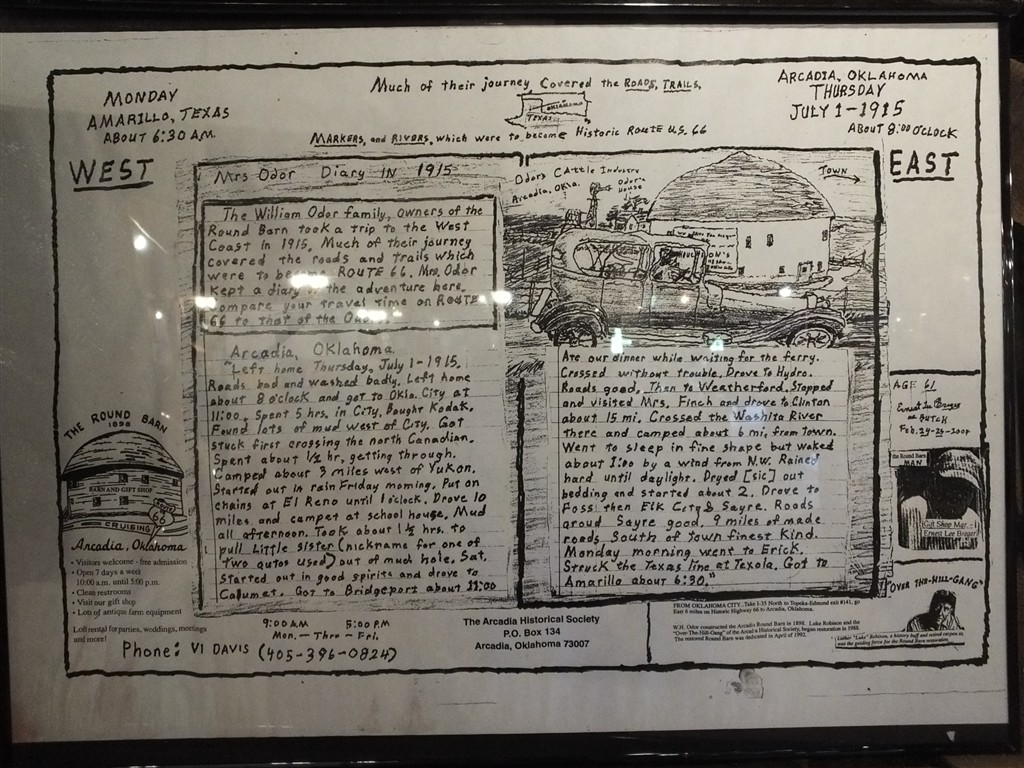 MONDAY
AMARILLO, TEXAS
ABOUT 6:30 A.M.
WEST
Much of their journey Covered the ROADS, TRAILS,
OKLAHOMA
TEXAS
MARKERS, and RIVERS, which were to become Historic ROUTE U.S. 66
ARCADIA, OKLAHOMA
THURSDAY
JULY 1-1915
ABOUT 8:00 O'CLOCK
EAST
Mrs Odor Diary IN 1915
The William Odor family, owners of the
Round Barn took a trip to the West
Coast in 1915. Much of their journey
covered the roads and trails which
were to become ROUTE 66. Mrs. Odor
Kept a diary of the adventure here.
Compare your travel time on ROUTE
66 to that of the
Arcadia, OKlahoma.
"Left home Thursday, July 1-1915.
Roads bad and washed badly. Left home
about 8 o'clock and got to Okla. City at
11:00. Spent 5 hrs. in City. Bought Kodak.
Found lots of mud west of City. Got
stuck first crossing the north Canadian.
Spent about 1/2 hr. getting through.
Camped about 3 miles west of Yukon.
Started out in rain Friday morning. Put on
chains at El Reno until 1 o'clock. Drove 10
miles and campet at school house. Mud
all afternoon. Took about 1 1/2 hrs. to
pull Little Sister (nickname for one of
two autos used) out of much hole. Sat.
Started out in good spirits and drove to
Calumet. Got to Bridgeport about 11:00
Odors Cattle Industry
Arcadia, Okla.
Odor's
House
TOWN
Ate our dinner while waiting for the ferry.
Crossed without trouble. Drove to Hydro.
Roads good. Then to Weatherford. Stopped
and visited Mrs. Finch and drove to Clinton
about 15 mi. Crossed the Washita River
there and camped about 6 mi. from town.
Went to sleep in fine shape but waked
about 1:00 by a wind from N.W. Rained
hard until daylight. Dryed [sic] out
bedding end started about 2. Drove to
Foss then Elk City & Sayre. Roads
aroud Sayre good. 9 miles of made
roads South of town finest Kind.
Monday morning went to Erick.
Struck the Texas line at Texola. Got to
Amarillo about 6:30."
THE ROUND BARN
1898
BARN AND GIFT SHOP
CRUISING
66
Arcadia, Oklahoma
• Visitors welcome - free admission
• Open 7 days a week
10:00 a.m. until 5:00 p.m.
• Clean restrooms
• Visit our gift shop
• Lots of antique farm equipment
Loft rental for parties, weddings, meetings
and more!
9:00 A.M 5:00 P.M
Mon. - Thru - Fri.
Phone: VI DAVIS (405-396-0824)
The Arcadia Historical Society
P.O. Box 134
Arcadia, Oklahoma 73007
FROM OKLAHOMA CITY...Take I-35 North to Topeka-Edmond exit #141, go
East 6 miles on Historic Highway 66 to Arcadia, Oklahoma.
W.H. Odor constructed the Arcadia Round Barn in 1898. Luke Robison and the
"Over-The-Hill-Gang" of the Arcadia Historical Society, began restoration in 1988.
The restored Round Barn was dedicated in April of 1992.
AGE 61
Ernest Lee
BUTCH
the Round Barn
MAN
Gift Shop Mgr.
Ernest Lee
"OVER-THE-HILL-GANG"
Luther "Luke" Robison, a history buff and retired carpenter,
was the guiding force for the Round Barn restoration.